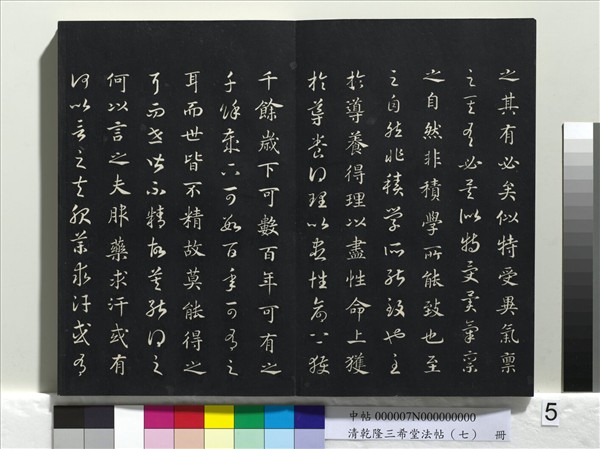 之其有必矣似特受異氣稟
之其有必矣似特受異氣稟
之自然非積學所能致也至
之自然非積學所能致也至
於導養得理以盡性命上獲
於導養得理以盡性命上獲
千餘歲下可數百年可有之
千餘歲下可數百年可有之
耳而世皆不精故莫能得之
耳而世皆不精故莫能得之
何以言之夫服藥求汗或有
何以言之夫服藥求汗或有
中帖 000007N000000000
清乾隆三希堂法帖（七） 冊
5